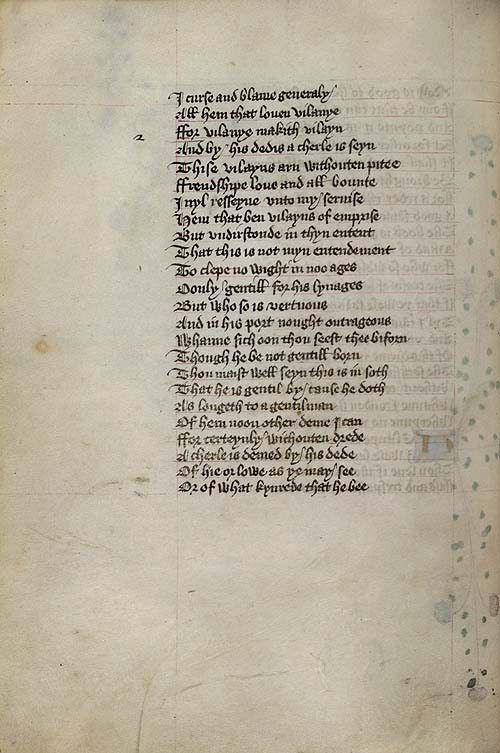 I curse and blame generaly /
All hem that loven vilanye
2
ffor vilanye makith vilayn
And by / his dedis a cherle is seyn
Thise vilayns arn withouten pitee
ffrendshipe love and all bounte
I nyl resseyve unto my / servise
Hem that ben vilayns of emprise
But undirstonde in thyn entent
That this is not myn entendement
To clepe no wight in noo ages
Oonly / gentill for his lynages
But who so is vertuous
And in his port nought outrageous
Whanne sich oon thou seest thee biforn
Though he be not gentill born
Thou maist well seyn this is in soth
That he is gentil by / cause he doth
As longeth to a gentilman
Of hem noon other deme I can
ffor certeynly / withouten drede
A cherle is demed by / his dede
Of hie or lowe as ye may / see
Or of what kynrede that he bee